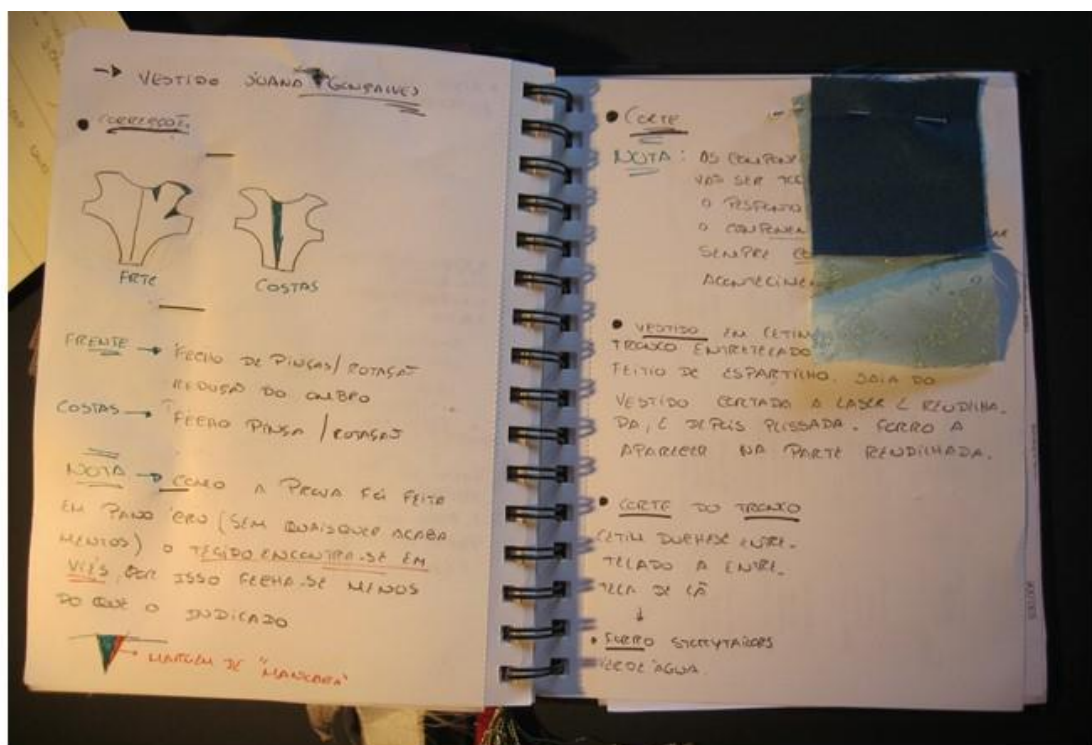 → VESTIDO JOANA GONÇALVES
• CORREÇÃO
FRTE
COSTAS
FRENTE → FECHO DE PINÇAS/ROTAÇÃO
REDUÇÃO DO OMBRO
COSTAS → FECHO PINÇA/ROTAÇÃO
NOTA → COMO A PROVA FOI FEITA
EM PANO CRÚ (SEM QUAISQUER ACABA
MENTOS) O TECIDO ENCONTRA-SE EM
VIÉS, POR ISSO FECHA-SE MENOS
DO QUE O INDICADO
→ MARGEM DE "MANOBRA"
• CORTE
NOTA: AS
VÃO SER
O PESPONTO
O
SEMPRE
• VESTIDO EM CETIM
TRONCO ENTRETELADO
FEITIO DE ESPARTILHO. SAIA DO
VESTIDO CORTADA A LASER E RENDILHA-
DA, E DEPOIS PLISSADA. FORRO A
APARECER NA PARTE RENDILHADA.
• CORTE DO TRONCO
CETIM DUCHESE ENTRE-
TELADO A ENTRE-
TELA DE LÃ
↓
• FORRO